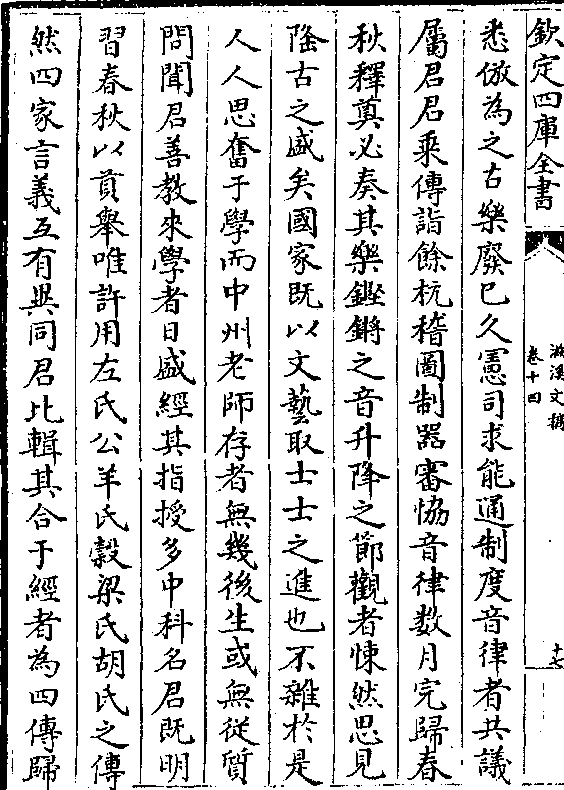 欽定四庫全書
滋溪文稿
卷十四
十七
悉倣為之古樂廢已久憲司求能通制度音律者共議
屬君君乘傳詣餘杭稽圖制器審協音律數月完歸春
秋釋奠必奏其樂鏗鏘之音升降之節觀者悚然思見
隆古之盛矣國家既以文藝取士士之進也不雜於是
人人思奮于學而中州老師存者無幾後生或無從質
問聞君善教來學者日盛經其指授多中科名君既明
習春秋以貢舉唯許用左氏公羊氏穀梁氏胡氏之傳
然四家言義互有異同君比輯其合于經者為四傳歸